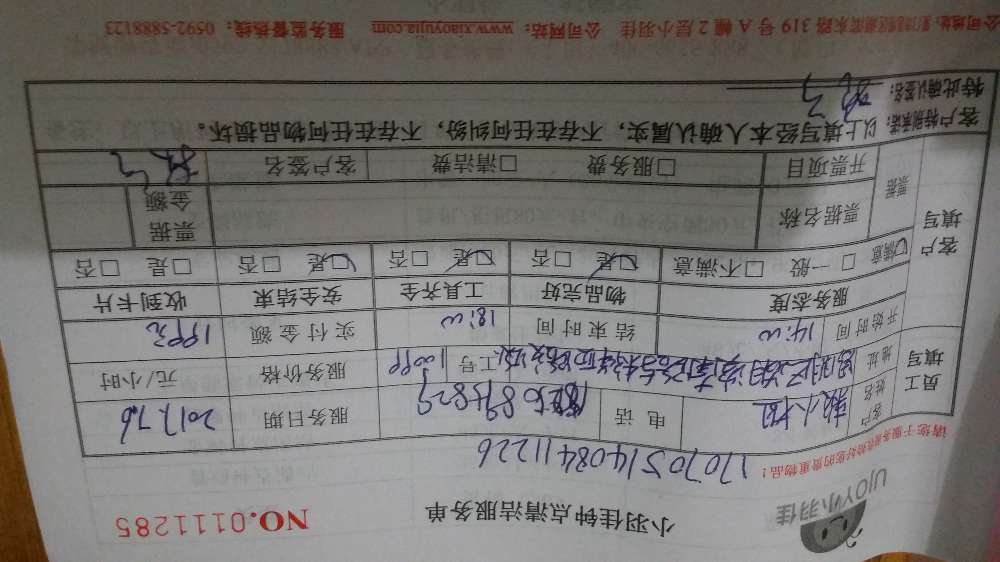 UJOY小羽佳
小羽佳钟点清洁服务单
NO.0111285
请您于服务前收拾好您的贵重物品!
17070514084411226
员工填写
客户姓名 赖小姐 电话 服务日期 2017.7.6
地址 工号 服务价格 元/小时
开始时间 14:00 结束时间 18:00 实付金额 199元
客户填写
服务态度 物品完好 工具齐全 安全结束 收到卡片
☑满意 □一般 □不满意 ☑是 □否 ☑是 □否 ☑是 □否 □是 □否
票据 票据名称 票据金额
开票项目 □服务费 □清洁费 客户签名
客户特别承诺: 以上填写经本人确认属实,不存在任何纠纷,不存在任何物品损坏。
特此确认签名:
319号A幢2层小羽佳 公司网站:www.xiaoyujia.com 服务监督热线:0592-5888123